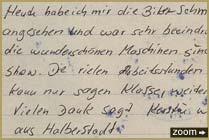 Heute habe ich mir die Biber-Schm
angesehen und war sehr beeindru
die wunderschönen Maschinen sin
show. Die vielen Arbeitsstunden
kann nur sagen Klasse, weiter
Vielen Dank sagt
aus Halberstadt.
zoom